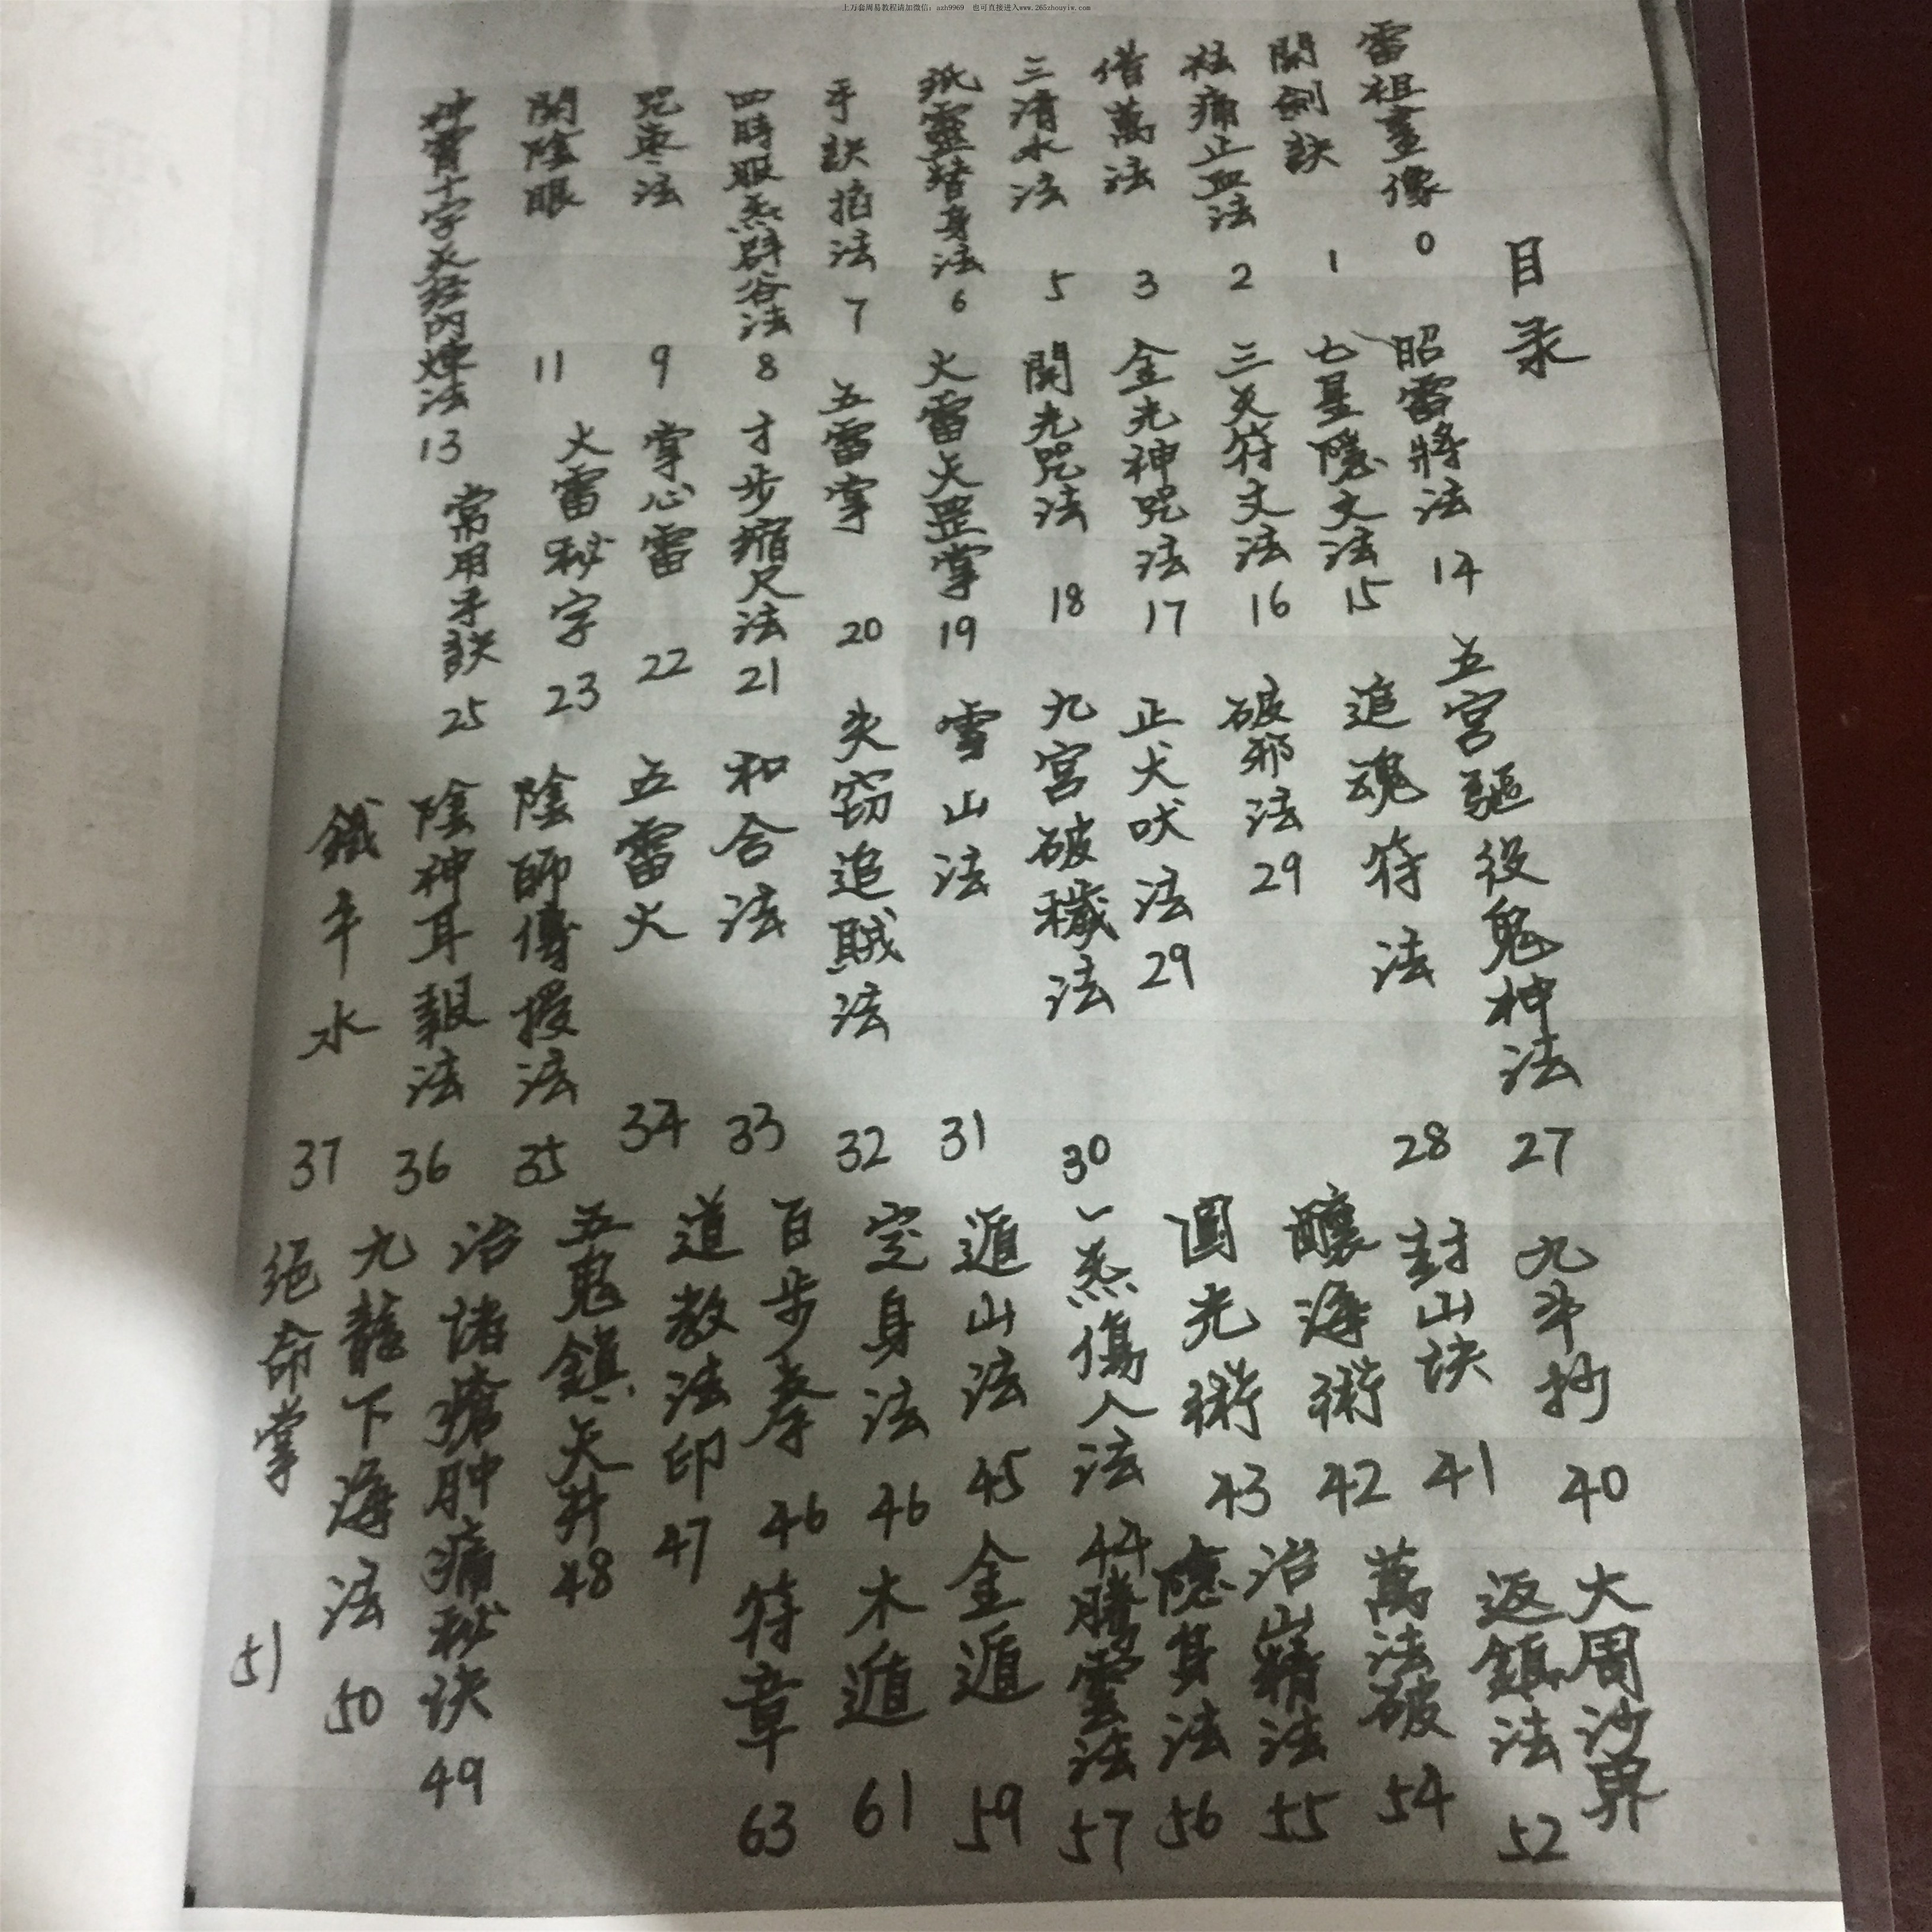 上万套周易教程请加微信:azh9969 也可直接进入www.265zhouyiw.com
目录
雷祖畫像 0
開劍訣 1
祛痛止血法 2
借萬法 3
三清水法 5
紙靈替身法 6
手訣掐法 7
四時服炁辟谷法 8
咒枣法 9
開陰眼 11
神霄十字天经内煉法 13
昭雷將法 14
七星隱文法 15
三天符文法 16
金光神咒法 17
開光咒法 18
火雷天罡掌 19
五雷掌 20
才步縮尺法 21
掌心雷 22
火雷秘字 23
常用手訣 25
五宫驅役鬼神法 27
追魂符法 28
破邪法 29
正犬吠法 29
九宫破穢法 30
雪山法 31
失窃追賊法 32
和合法 33
五雷火 34
陰師傳授法 35
陰神耳報法 36
鐵牛水 37
九牛抄 40
封山诀 41
釀海術 42
圓光術 43
一炁傷人法 44
遁山法 45
定身法 46
百步拳 46
道教法印 47
五鬼鎮天井 48
治諸瘡肿痛秘诀 49
九龍下海法 50
绝命掌 51
大周沙界
返鎮法 52
萬法破 54
治山精法 55
隱身法 56
騰雲法 57
金遁 59
木遁 61
符章 63